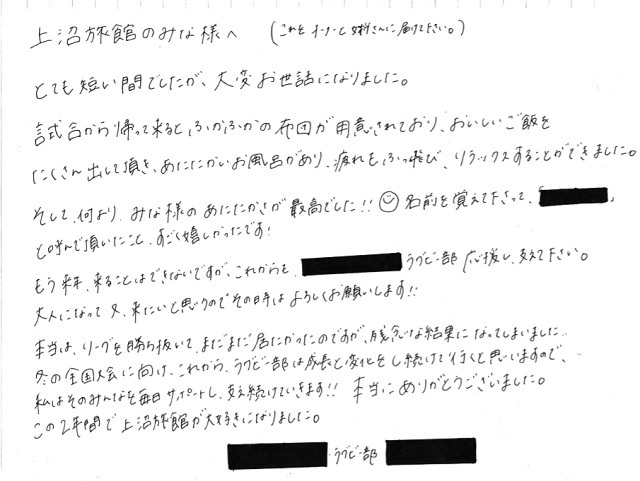 上沼旅館のみな様へ (これを オーナーと女将さんに届けて下さい。)
とても短い間でしたが、大変お世話になりました。
試合から帰って来ると、ふかふかの布団が用意されており、おいしいご飯を
たくさん出して頂き、あたたかいお風呂があり、疲れもふっ飛び、リラックスすることができました。
そして、何より、みな様のあたたかさが最高でした!! 名前を覚えて下さって、「
と呼んで頂いたこと、すごく嬉しかったです!
もう来年、来ることはできないですが、これからも、 ラグビー部 応援し、支えて下さい。
大人になって又、来たいと思うのでその時はよろしくお願いします!!
本当は、リーグを勝ち抜いて、まだまだ居たかったのですが、残念な結果になってしまいました…
冬の全国大会に向け、これから、ラグビー部は成長と変化をし続けて行くと思いますので、
私はそのみんなを毎日サポートし、支え続けていきます!! 本当にありがとうございました。
この2年間で上沼旅館が大好きになりました。
ラグビー部